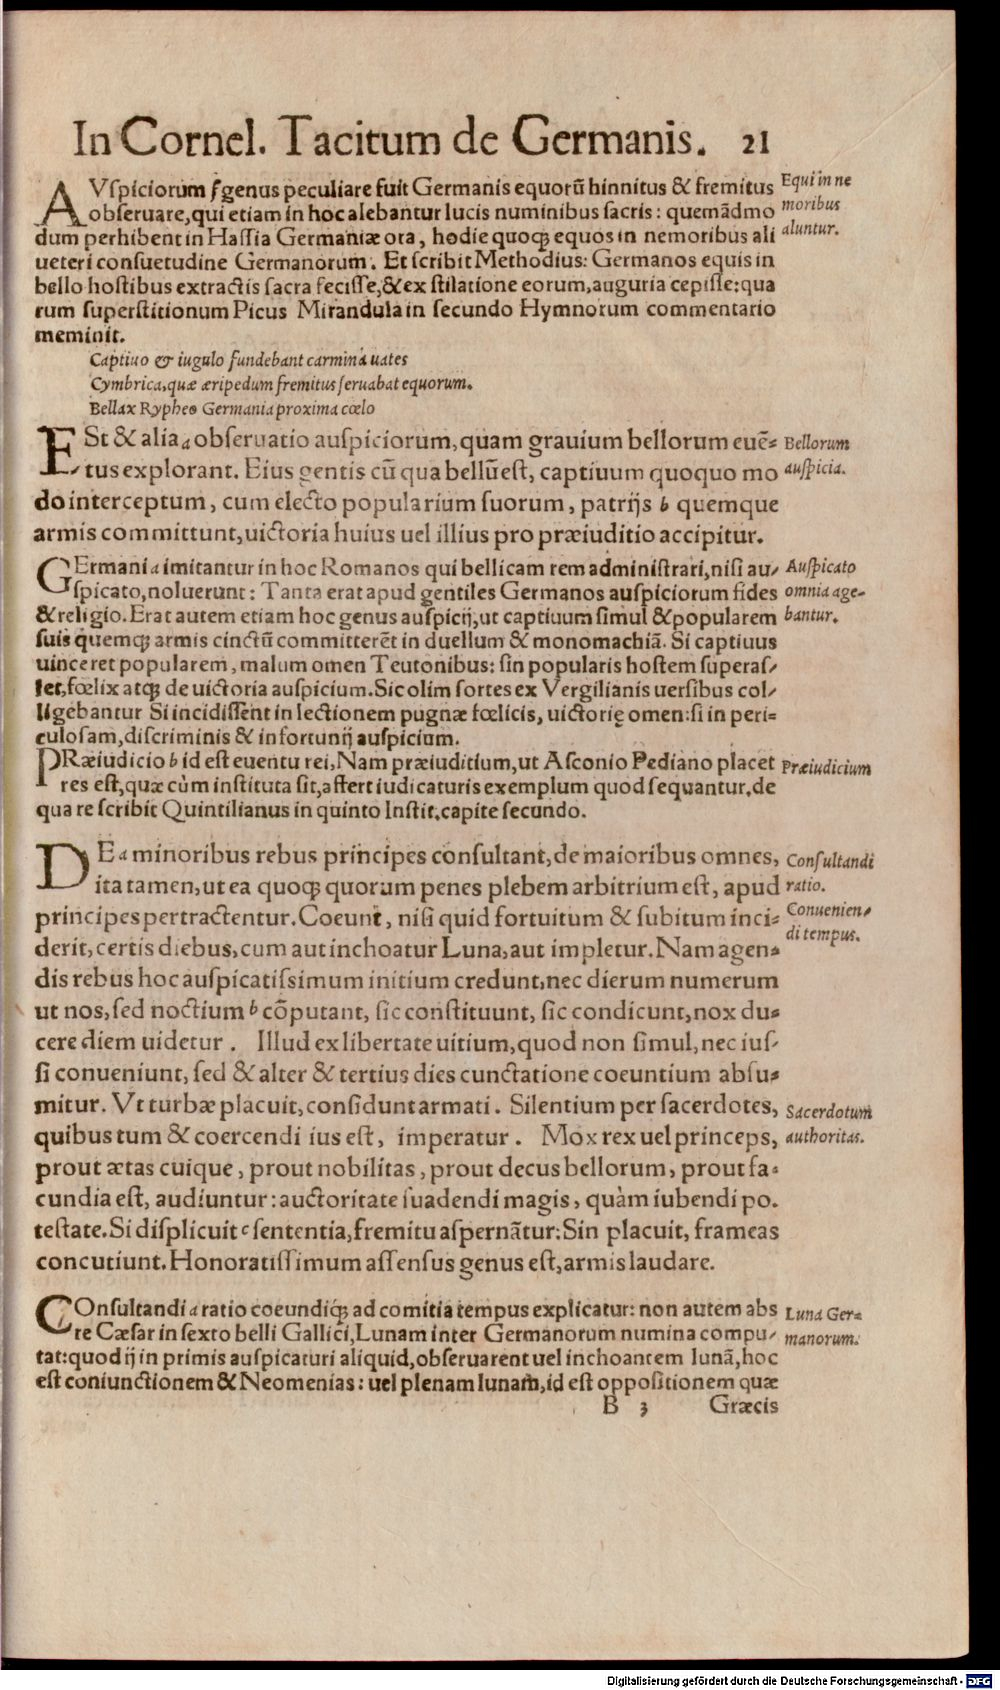 In Cornel. Tacitum de Germanis. 21
AVſpiciorum f genus peculiare fuit Germanis equorũ hinnitus & fremitus
obſeruare, qui etiam in hoc alebantur lucis numinibus ſacris: quemãdmo
dum perhibent in Haſſia Germaniæ ora, hodie quoq; equos in nemoribus ali
ueteri conſuetudine Germanorum. Et ſcribit Methodius: Germanos equis in
bello hoſtibus extractis ſacra feciſſe, & ex ſtilatione eorum, auguria cepiſſe: qua
rum ſuperſtitionum Picus Mirandula in ſecundo Hymnorum commentario
meminit.
Equi in ne
moribus
aluntur.
Captiuo & iugulo fundebant carmina uates
Cymbrica, quæ æripedum fremitus ſeruabat equorum.
Bellax Rypheo Germania proxima cœlo
ESt & alia a obſeruatio auſpiciorum, quam grauium bellorum euẽ-
tus explorant. Eius gentis cũ qua bellũ eſt, captiuum quoquo mo
do interceptum, cum electo popularium ſuorum, patrijs b quemque
armis committunt, uictoria huius uel illius pro præiuditio accipitur.
Bellorum
auſpicia.
GErmani a imitantur in hoc Romanos qui bellicam rem adminiſtrari, niſi au-
ſpicato, noluerunt: Tanta erat apud gentiles Germanos auſpiciorum fides
& religio. Erat autem etiam hoc genus auſpicij, ut captiuum ſimul & popularem
ſuis quemq; armis cinctũ committerẽt in duellum & monomachiã. Si captiuus
uinceret popularem, malum omen Teutonibus: ſin popularis hoſtem ſuperaſ-
ſet, fœlix atq; de uictoria auſpicium. Sic olim ſortes ex Vergilianis uerſibus col-
ligebantur Si incidiſſent in lectionem pugnæ fœlicis, uictorię omen: ſi in peri-
culoſam, diſcriminis & infortunij auſpicium.
Auſpicato
omnia age-
bantur.
PRæiudicio b id eſt euentu rei, Nam præiuditium, ut Aſconio Pediano placet
res eſt, quæ cùm inſtituta ſit, affert iudicaturis exemplum quod ſequantur, de
qua re ſcribit Quintilianus in quinto Inſtit. capite ſecundo.
Præiudicium
DE a minoribus rebus principes conſultant, de maioribus omnes,
ita tamen, ut ea quoq; quorum penes plebem arbitrium eſt, apud
principes pertractentur. Coeunt, niſi quid fortuitum & ſubitum inci-
derit, certis diebus, cum aut inchoatur Luna, aut impletur. Nam agen-
dis rebus hoc auſpicatiſſimum initium credunt, nec dierum numerum
ut nos, ſed noctium b cõputant, ſic conſtituunt, ſic condicunt, nox du-
cere diem uidetur. Illud ex libertate uitium, quod non ſimul, nec iuſ-
ſi conueniunt, ſed & alter & tertius dies cunctatione coeuntium abſu-
mitur. Vt turbæ placuit, conſidunt armati. Silentium per ſacerdotes,
quibus tum & coercendi ius eſt, imperatur. Mox rex uel princeps,
prout ætas cuique, prout nobilitas, prout decus bellorum, prout fa-
cundia eſt, audiuntur: auctoritate ſuadendi magis, quàm iubendi po-
teſtate. Si diſplicuit c ſententia, fremitu aſpernãtur: Sin placuit, frameas
concutiunt. Honoratiſſimum aſſenſus genus eſt, armis laudare.
Conſultandi
ratio.
Conuenien-
di tempus.
Sacerdotum
authoritas.
COnſultandi a ratio coeundiq; ad comitia tempus explicatur: non autem abs
re Cæſar in ſexto belli Gallici, Lunam inter Germanorum numina compu-
tat: quod ij in primis auſpicaturi aliquid, obſeruarent uel inchoantem lunã, hoc
eſt coniunctionem & Neomenias: uel plenam lunam, id eſt oppoſitionem quæ
Luna Ger-
manorum.
B 3 Græcis
Digitalisierung gefördert durch die Deutsche Forschungsgemeinschaft - DFG